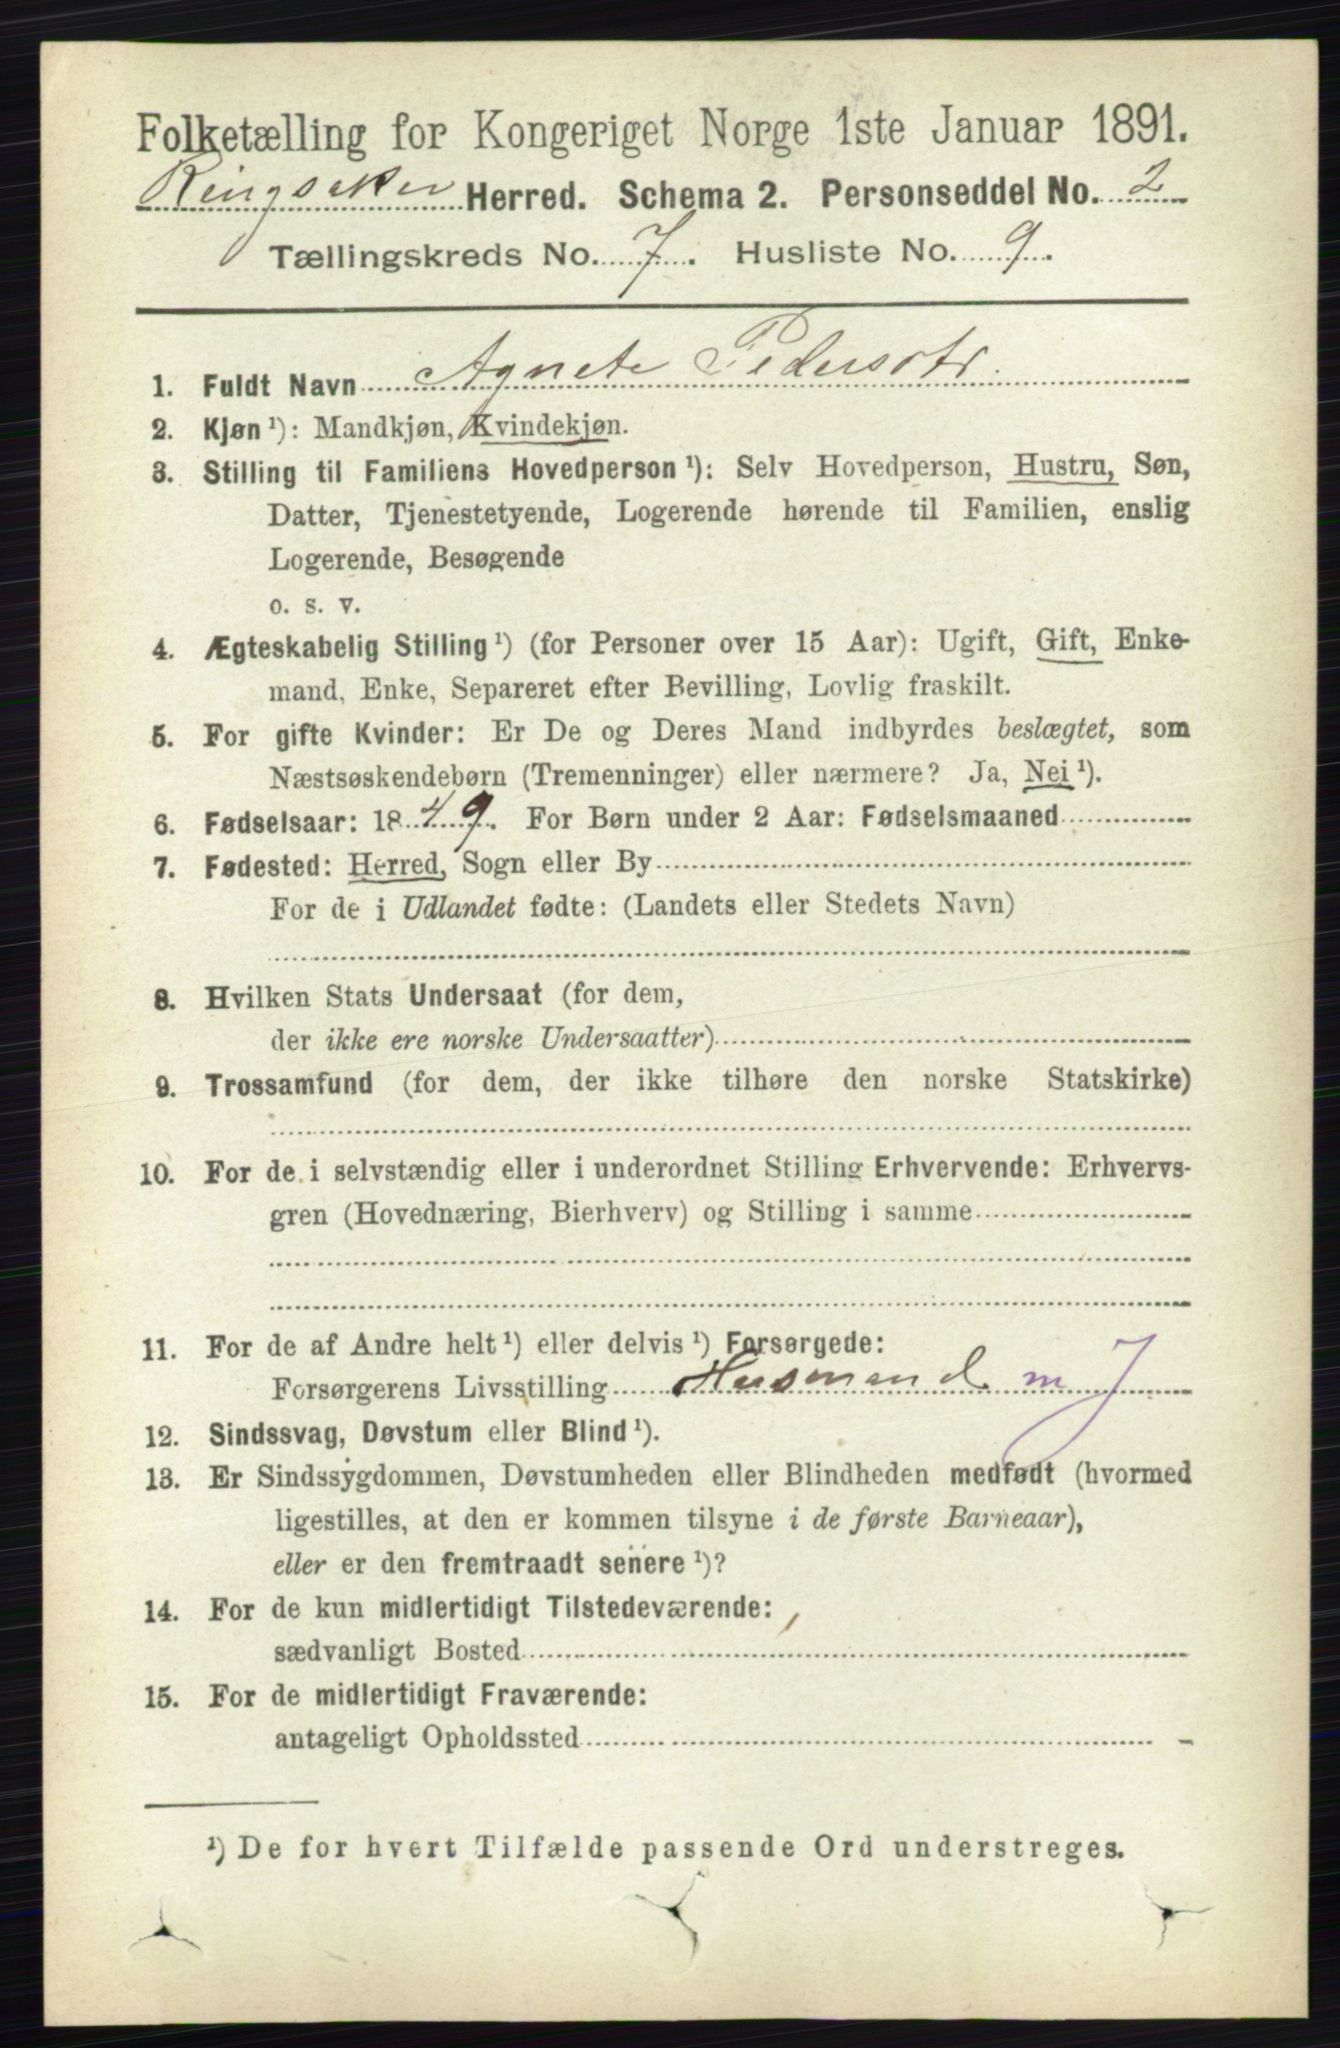 Folketælling for Kongeriget Norge 1ste Januar 1891.
Ringsaker Herred. Schema 2. Personseddel No. 2
Tællingskreds No. 7. Husliste No. 9.
1. Fuldt Navn Agnete Pedersdtr.
2. Kjøn ¹): Mandkjøn, Kvindekjøn.
3. Stilling til Familiens Hovedperson ¹): Selv Hovedperson, Hustru, Søn,
Datter, Tjenestetyende, Logerende hørende til Familien, enslig
Logerende, Besøgende
o. s. v.
4. Ægteskabelig Stilling ¹) (for Personer over 15 Aar): Ugift, Gift, Enke-
mand, Enke, Separeret efter Bevilling, Lovlig fraskilt.
5. For gifte Kvinder: Er De og Deres Mand indbyrdes beslægtet, som
Næstsøskendebørn (Tremenninger) eller nærmere? Ja, Nei ¹).
6. Fødselsaar: 1849. For Børn under 2 Aar: Fødselsmaaned
7. Fødested: Herred, Sogn eller By
For de i Udlandet fødte: (Landets eller Stedets Navn)
8. Hvilken Stats Undersaat (for dem,
der ikke ere norske Undersaatter)
9. Trossamfund (for dem, der ikke tilhøre den norske Statskirke)
10. For de i selvstændig eller i underordnet Stilling Erhvervende: Erhvervs-
gren (Hovednæring, Bierhverv) og Stilling i samme
11. For de af Andre helt ¹) eller delvis ¹) Forsørgede:
Forsørgerens Livsstilling Husmand m J
12. Sindssvag, Døvstum eller Blind ¹).
13. Er Sindssygdommen, Døvstumheden eller Blindheden medfødt (hvormed
ligestilles, at den er kommen tilsyne i de første Barneaar),
eller er den fremtraadt senere ¹)?
14. For de kun midlertidigt Tilstedeværende:
sædvanligt Bosted
15. For de midlertidigt Fraværende:
antageligt Opholdssted
¹) De for hvert Tilfælde passende Ord understreges.